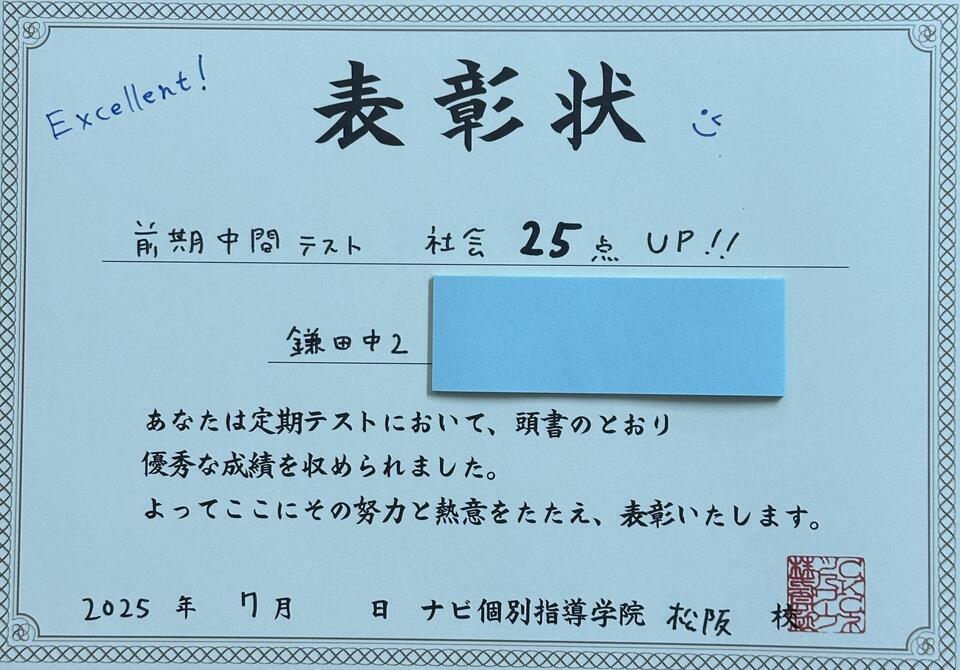 Excellent!
表彰状
前期中間テスト 社会 25点 UP!!
鎌田中2
あなたは定期テストにおいて、頭書のとおり
優秀な成績を収められました。
よってここにその努力と熱意をたたえ、表彰いたします。
2025年 7月 日 ナビ個別指導学院 松阪 校